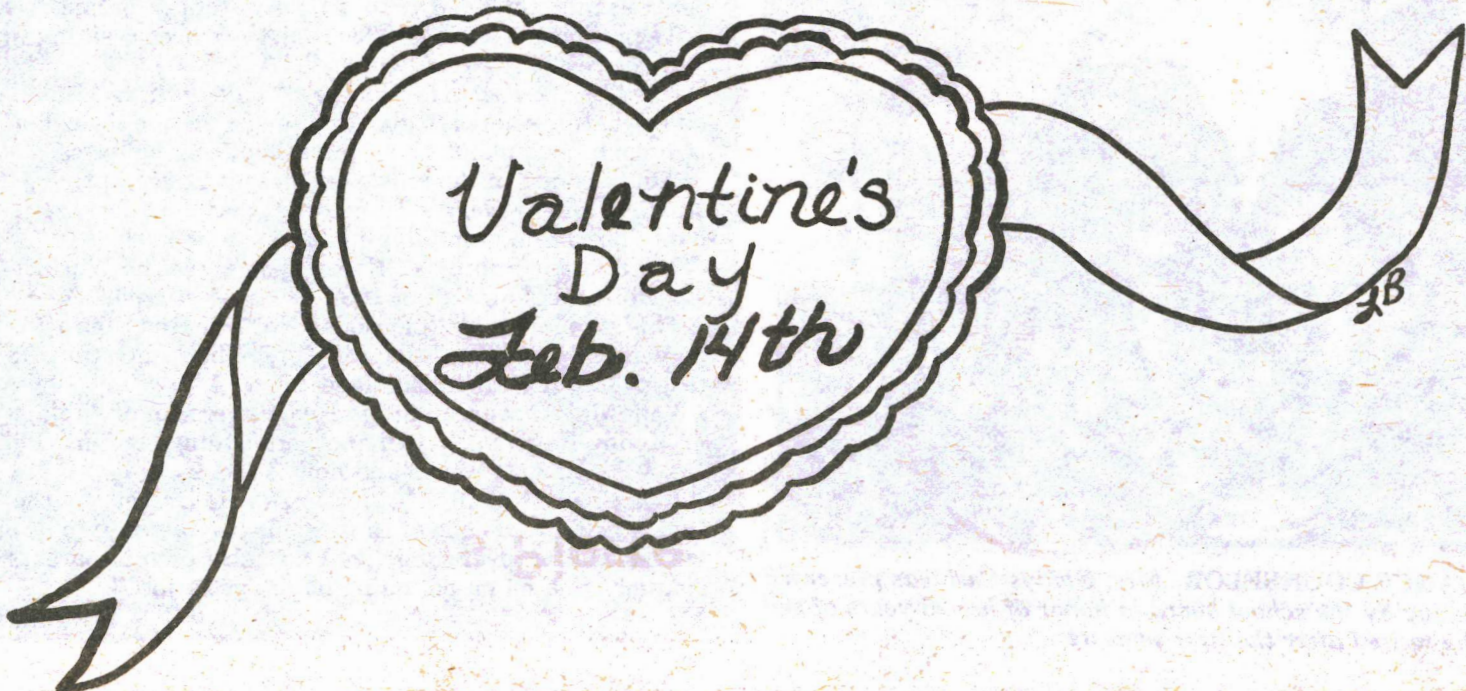 Valentine's
Day
Feb. 14th